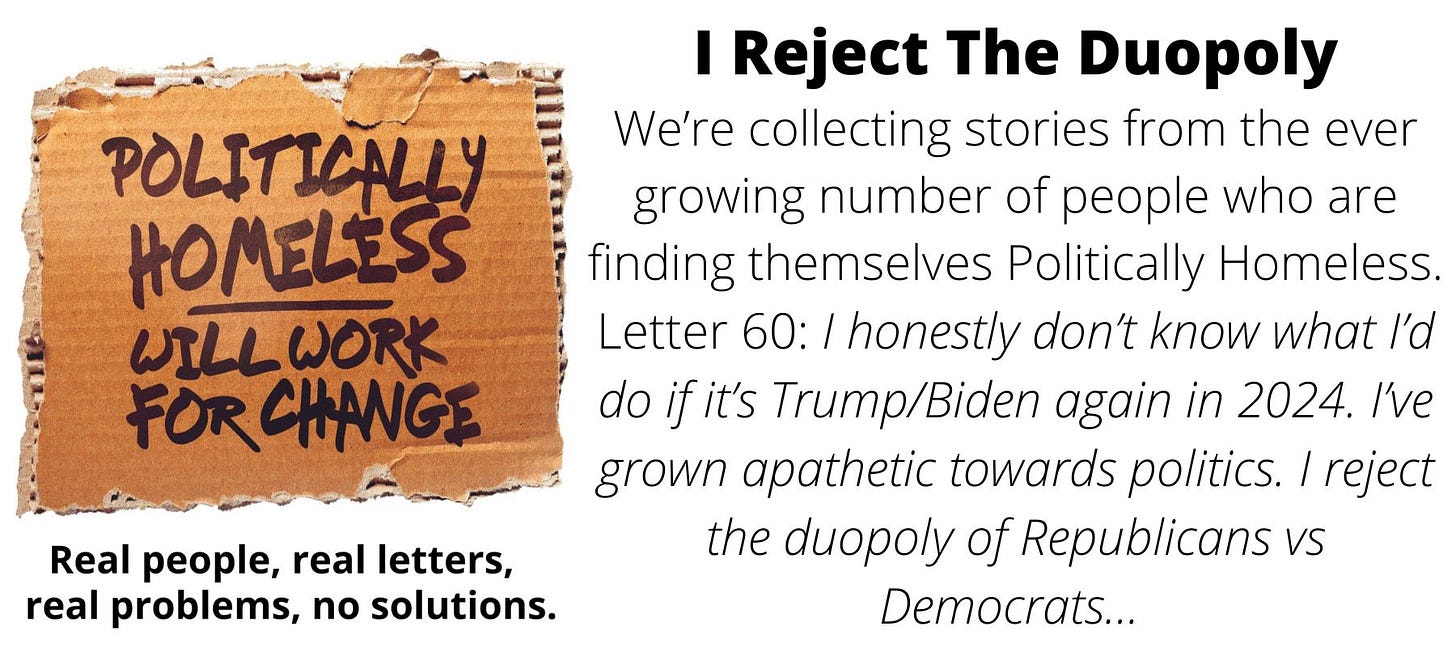 POLITICALLY
HOMELESS
WILL WORK
FOR CHANGE
Real people, real letters,
real problems, no solutions.
I Reject The Duopoly
We’re collecting stories from the ever
growing number of people who are
finding themselves Politically Homeless.
Letter 60: I honestly don’t know what I’d
do if it’s Trump/Biden again in 2024. I’ve
grown apathetic towards politics. I reject
the duopoly of Republicans vs
Democrats...